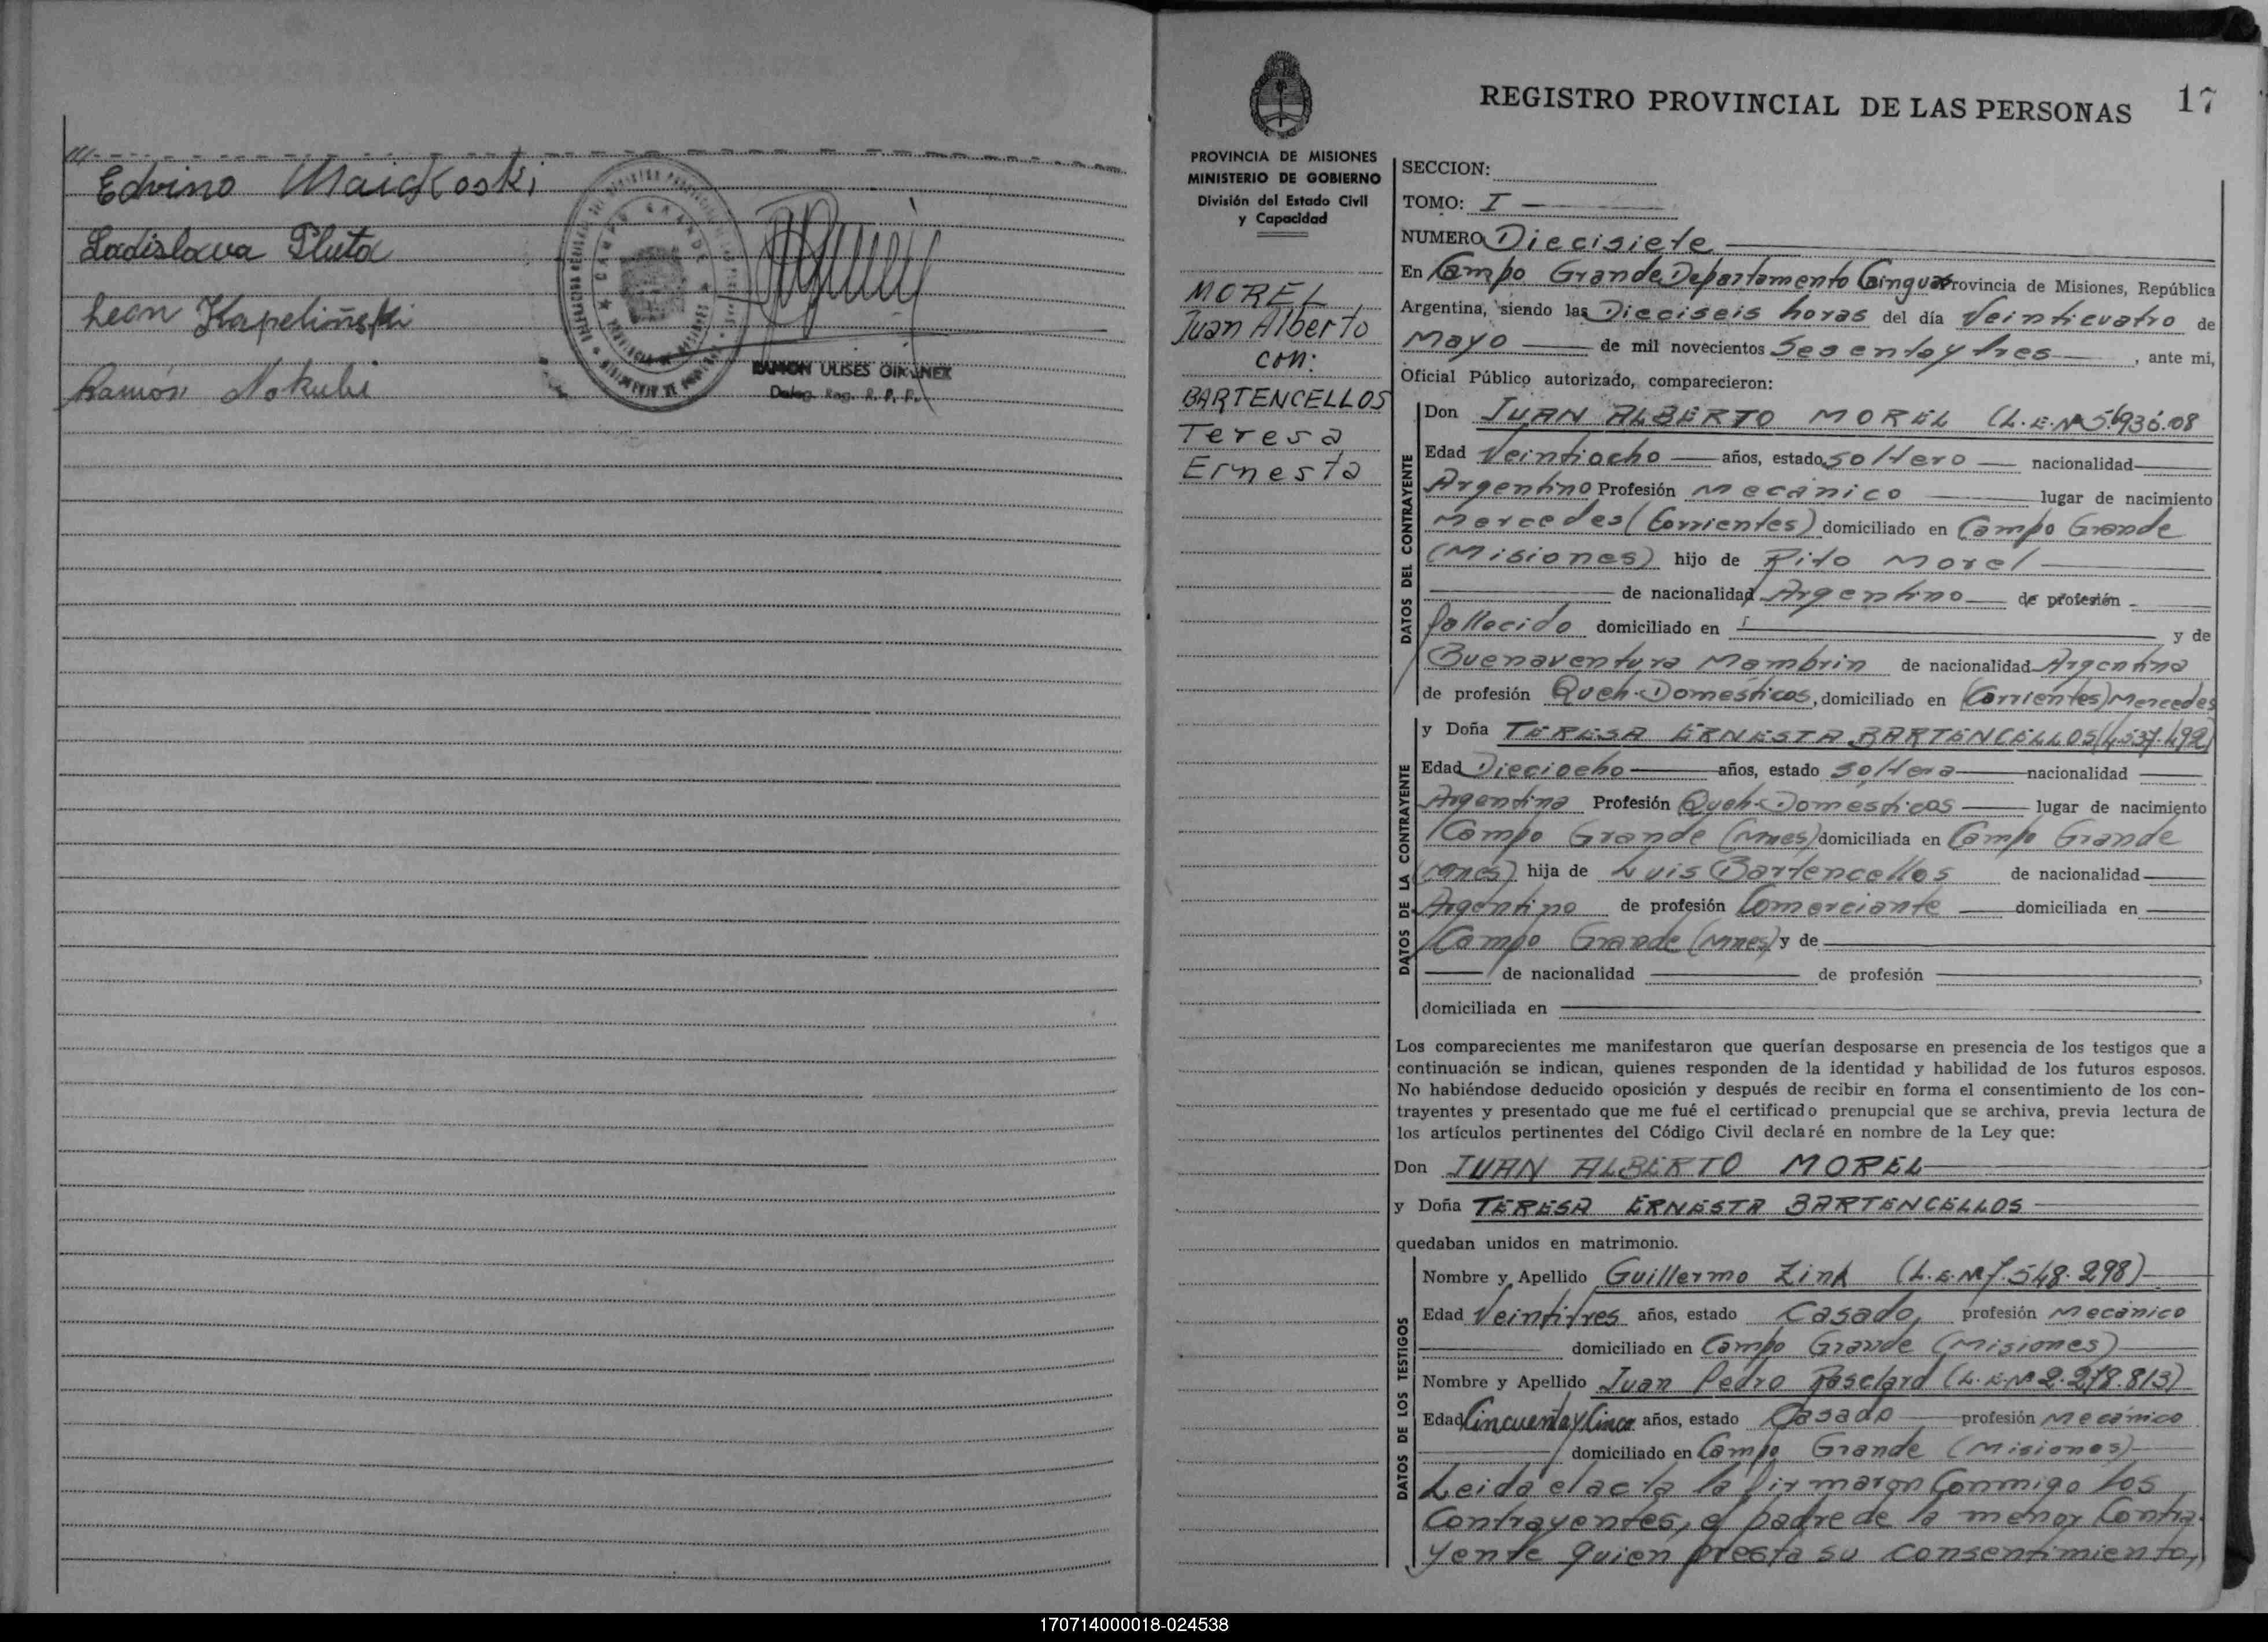 Edvino Maickoski
Ladislava Pluta
Leon Kapeliński
Ramón Nokuhi
RAMON ULISES GIMENEZ
Deleg. Reg. R. P. P.
REGISTRO PROVINCIAL DE LAS PERSONAS 17
PROVINCIA DE MISIONES
MINISTERIO DE GOBIERNO
División del Estado Civil
y Capacidad
MOREL,
Juan Alberto
con:
BARTENCELLOS
Teresa
Ernesta
SECCION:
TOMO: I
NUMERO Diecisiete
En Campo Grande, Departamento Cainguas Provincia de Misiones, República
Argentina, siendo las Dieciseis horas del día Veinticuatro de
Mayo de mil novecientos Sesenta y tres, ante mi,
Oficial Público autorizado, comparecieron:
DATOS DEL CONTRAYENTE
Don JUAN ALBERTO MOREL (L.E.Nº 5.693.08
Edad Veintiocho años, estado soltero nacionalidad
Argentino Profesión Mecánico lugar de nacimiento
Mercedes (Corrientes) domiciliado en Campo Grande
(Misiones) hijo de Rito Morel
de nacionalidad Argentino de profesión
fallecido domiciliado en y de
Buenaventura Mambrin de nacionalidad Argentina
de profesión Queh. Domésticos, domiciliado en (Corrientes) Mercedes
DATOS DE LA CONTRAYENTE
y Doña TERESA ERNESTA BARTENCELLOS (4.537.492)
Edad Dieciocho años, estado soltera nacionalidad
Argentina Profesión Queh. Domésticos lugar de nacimiento
Campo Grande (Mnes) domiciliada en Campo Grande
(Mnes) hija de Luis Bartencellos de nacionalidad
Argentino de profesión Comerciante domiciliada en
Campo Grande (Mnes) y de
de nacionalidad de profesión
domiciliada en
Los comparecientes me manifestaron que querían desposarse en presencia de los testigos que a
continuación se indican, quienes responden de la identidad y habilidad de los futuros esposos.
No habiéndose deducido oposición y después de recibir en forma el consentimiento de los con-
trayentes y presentado que me fué el certificado prenupcial que se archiva, previa lectura de
los artículos pertinentes del Código Civil declaré en nombre de la Ley que:
Don JUAN ALBERTO MOREL
y Doña TERESA ERNESTA BARTENCELLOS
quedaban unidos en matrimonio.
DATOS DE LOS TESTIGOS
Nombre y Apellido Guillermo Zink (L.E.Nº 7.548.298)
Edad Veintitres años, estado Casado, profesión Mecánico
domiciliado en Campo Grande (Misiones)
Nombre y Apellido Juan Pedro Rasclard (L.E.Nº 2.278.813)
Edad Cincuenta y Cinco años, estado Casado profesión Mecánico
domiciliado en Campo Grande (Misiones)
Leida el acta la firmaron Conmigo los
Contrayentes, el padre de la menor Contra-
yente quien presta su consentimiento,
170714000018-024538